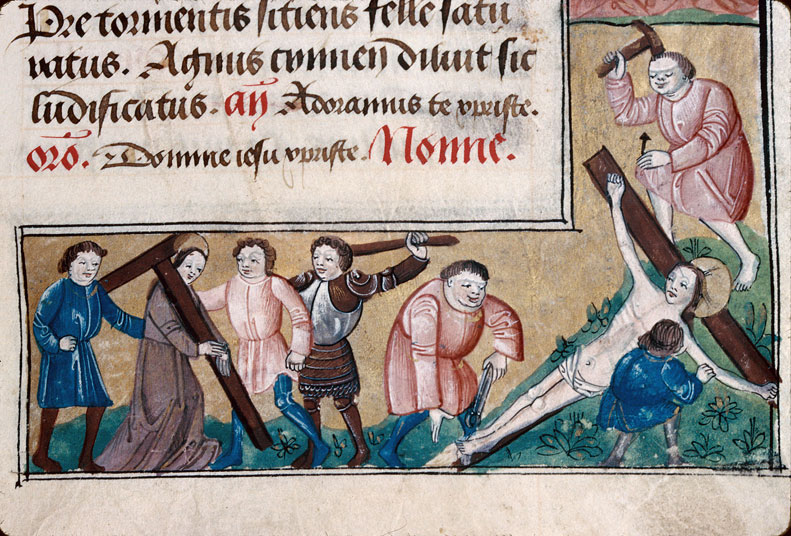 Pre tormentis sitiens felle satu
ratus. Agnus crimen diluit sic
ludificatus. an Adoramus te xpriste.
oro. Domine iesu xpriste. Nonne.